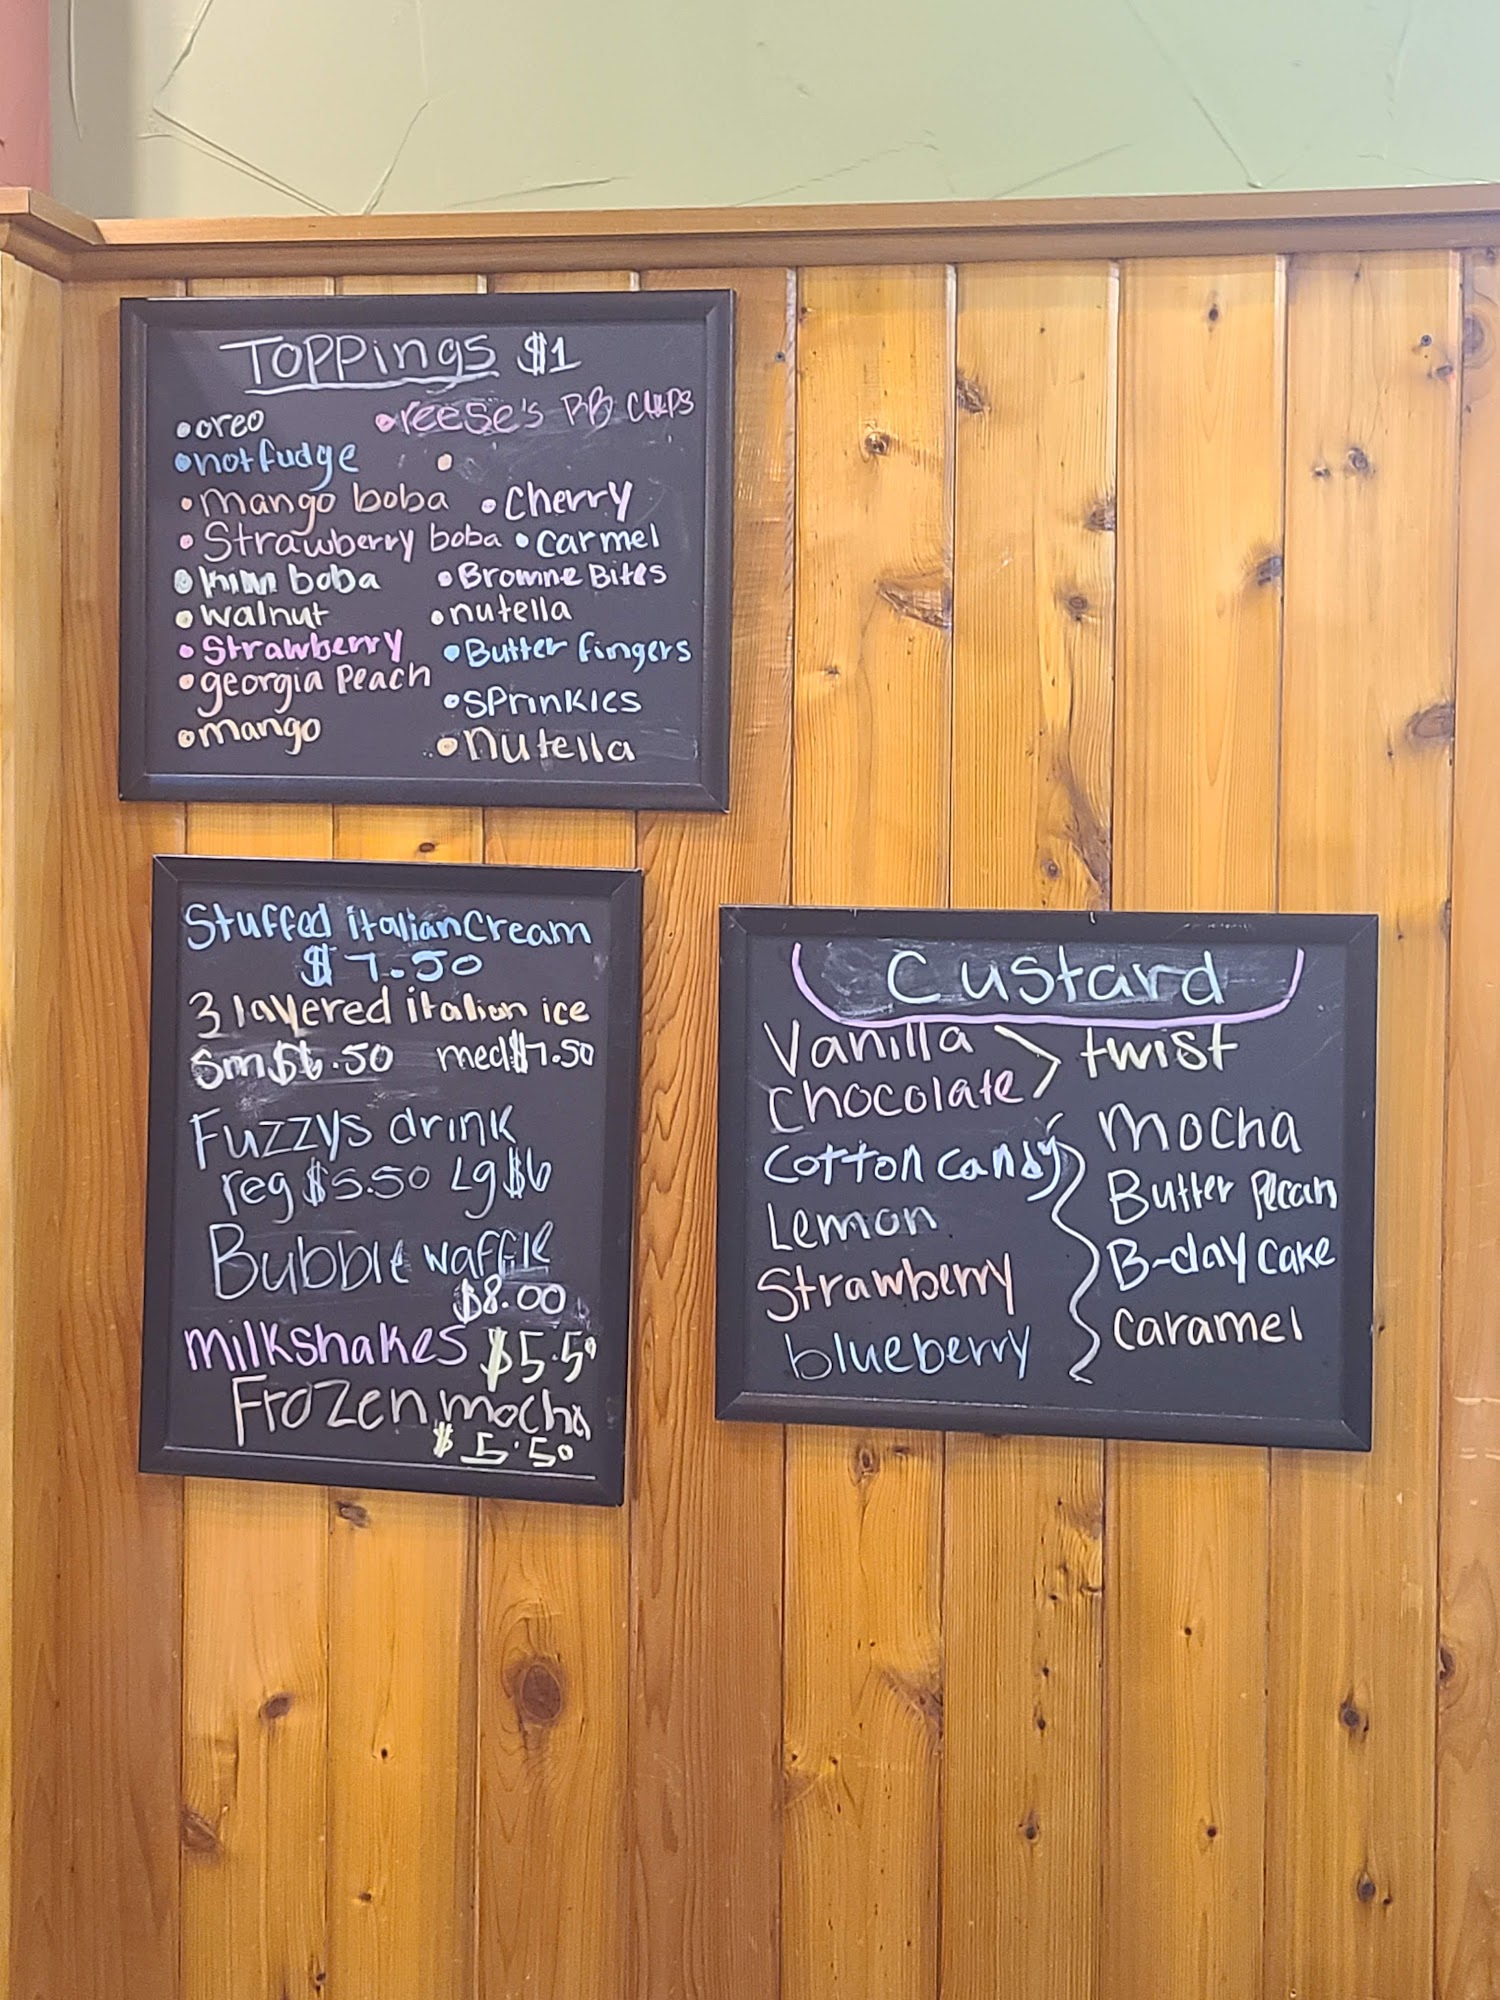 Toppings $1
• oreo
• hot fudge
• mango boba
• Strawberry boba
• boba
• walnut
• Strawberry
• georgia Peach
• mango
• reese's PB CUPS
•
• Cherry
• carmel
• Browne Bites
• nutella
• Butter fingers
• SPrinkles
• nutella
Stuffed italian cream
$7.50
3 layered italian ice
Sm $6.50 med $7.50
Fuzzys drink
reg $5.50 Lg $6
Bubble waffle
$8.00
milkshakes $5.50
Frozen mocha
$5.50
Custard
Vanilla
Chocolate
twist
Cotton Candy
Lemon
Strawberry
blueberry
Mocha
Butter Pecan
B-day Cake
Caramel